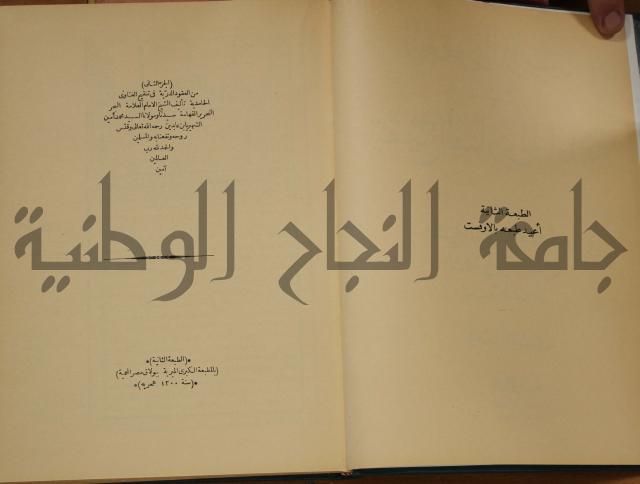 الطبعة الثانية
أعيد طبعه بالأوفست
(الجزء الثانى)
من العقود الدرية فى تنقيح الفتاوى
الحامدية تأليف الشيخ الامام العلامة الحبر
البحر الفهامة سيدنا ومولانا السيد محمد أمين
الشهير بابن عابدين رحمه الله تعالى وقدس
روحه ونفعنا به والمسلمين
والحمد لله رب
العالمين
آمين
*(الطبعة الثانية)*
(بالمطبعة الكبرى الميرية ببولاق مصر المحمية)
*(سنة ١٣٠٠ هجرية)*
جامعة النجاح الوطنية